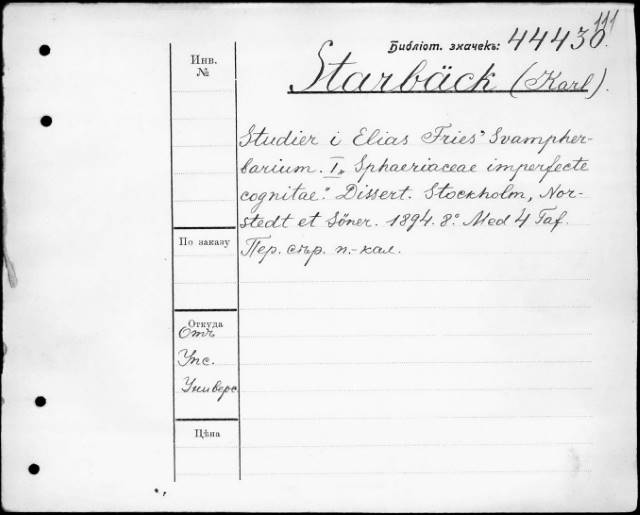 111
Библіот. значекъ: 44430.
Инв.
№
Starbäck (Karl).
Studier i Elias Fries' Svampher-
barium. I. „Sphaeriaceae imperfecte
cognitae". Dissert. Stockholm, Nor-
stedt et Söner. 1894. 8º. Med 4 Taf.
По заказу
Пер. стр. п.-кал.
Откуда
Отъ
Упс.
Универс.
Цѣна